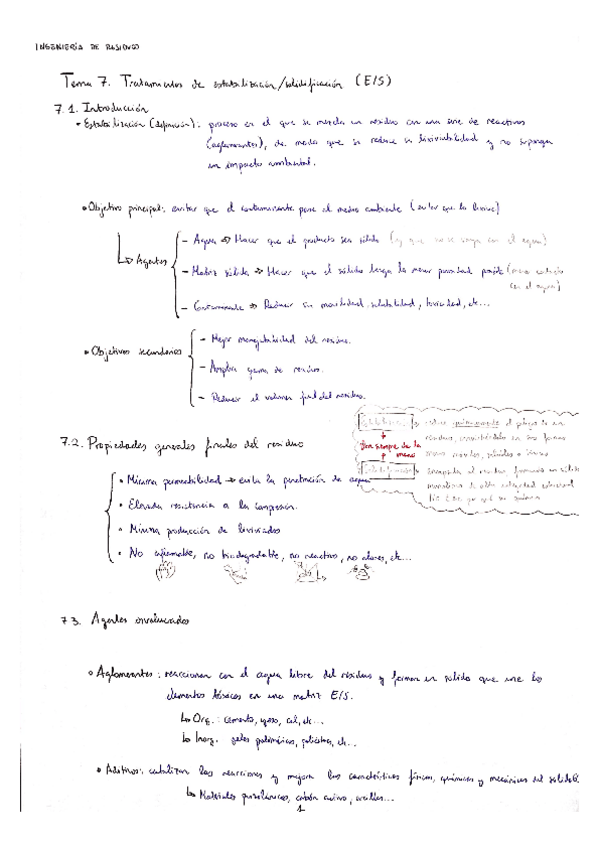 INGENIERÍA DE RESIDUOS
Tema 7. Tratamientos de estabilización/solidificación (E/S)
7.1. Introducción
• Estabilización (definición): proceso en el que se mezcla un residuo con una serie de reactivos
(aglomerantes), de modo que se reduce su lixiviabilidad y no suponga
un impacto ambiental.
• Objetivo principal: evitar que el contaminante pase al medio ambiente (evitar que lo lixivie)
↳ Agentes
- Agua ⇒ Hacer que el producto sea sólido (y que no se venga con el agua)
- Matriz sólida ⇒ Hacer que el sólido tenga la menor porosidad posible (menos contacto
con el agua)
- Contaminante ⇒ Reducir su movilidad, solubilidad, toxicidad, etc...
• Objetivos secundarios
- Mejor manejabilidad del residuo.
- Amplia gama de residuos.
- Reducir el volumen final del residuo.
7.2. Propiedades generales finales del residuo
• Mínima permeabilidad → evita la penetración de agua
• Elevada resistencia a la compresión.
• Mínima producción de lixiviados
• No inflamable, no biodegradable, no reactivo, no olores, etc...
+
Van siempre de la
+ mano
reducir químicamente el peligro de un
residuo, convirtiéndolo en sus formas
menos móviles, solubles o tóxicas
encapsula el residuo, formando un sólido
monolítico de alta integridad estructural
7.3. Agentes involucrados
• Aglomerantes: reaccionan con el agua libre del residuo y forman un sólido que une los
elementos tóxicos en una matriz E/S.
↳ Org.: cemento, yeso, cal, etc...
↳ Inorg. geles poliméricos, etc...
• Aditivos: catalizan las reacciones y mejora las características físicas, químicas y mecánicas del sólido.
↳ Materiales puzolánicos, carbón activo, arcillas...
1